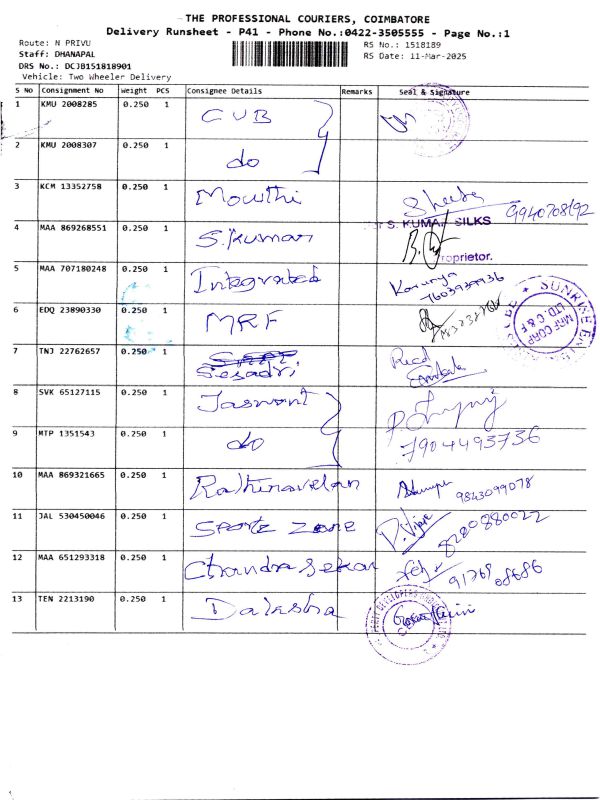 THE PROFESSIONAL COURIERS, COIMBATORE
Delivery Runsheet - P41 - Phone No.:0422-3505555 - Page No.:1
Route: N PRIVU
RS No.: 1518189
Staff: DHANAPAL
RS Date: 11-Mar-2025
DRS No.: DCJB151818901
Vehicle: Two Wheeler Delivery
S No Consignment No Weight PCS Consignee Details Remarks Seal & Signature
1 KMU 2008285 0.250 1 CUB
2 KMU 2008307 0.250 1 do
3 KCM 13352758 0.250 1 Mowthi Sheeba 9940708192
4 MAA 869268551 0.250 1 S.Kumar S. KUMAR SILKS
Proprietor.
5 MAA 707180248 0.250 1 Integrated Karunya
7603939936
6 EDQ 23890330 0.250 1 MRF
SUNRISE MRF CORP LTD. C & F
7 TNJ 22762657 0.250 1 Sesadri Recd
8 SVK 65127115 0.250 1 Jaswant
9 MTP 1351543 0.250 1 do 7904493736
10 MAA 869321665 0.250 1 Rathinavelan 9843099078
11 JAL 530450046 0.250 1 Sports Zone D. Vijay 8220880022
12 MAA 651293318 0.250 1 Chandra Sekar
13 TEN 2213190 0.250 1